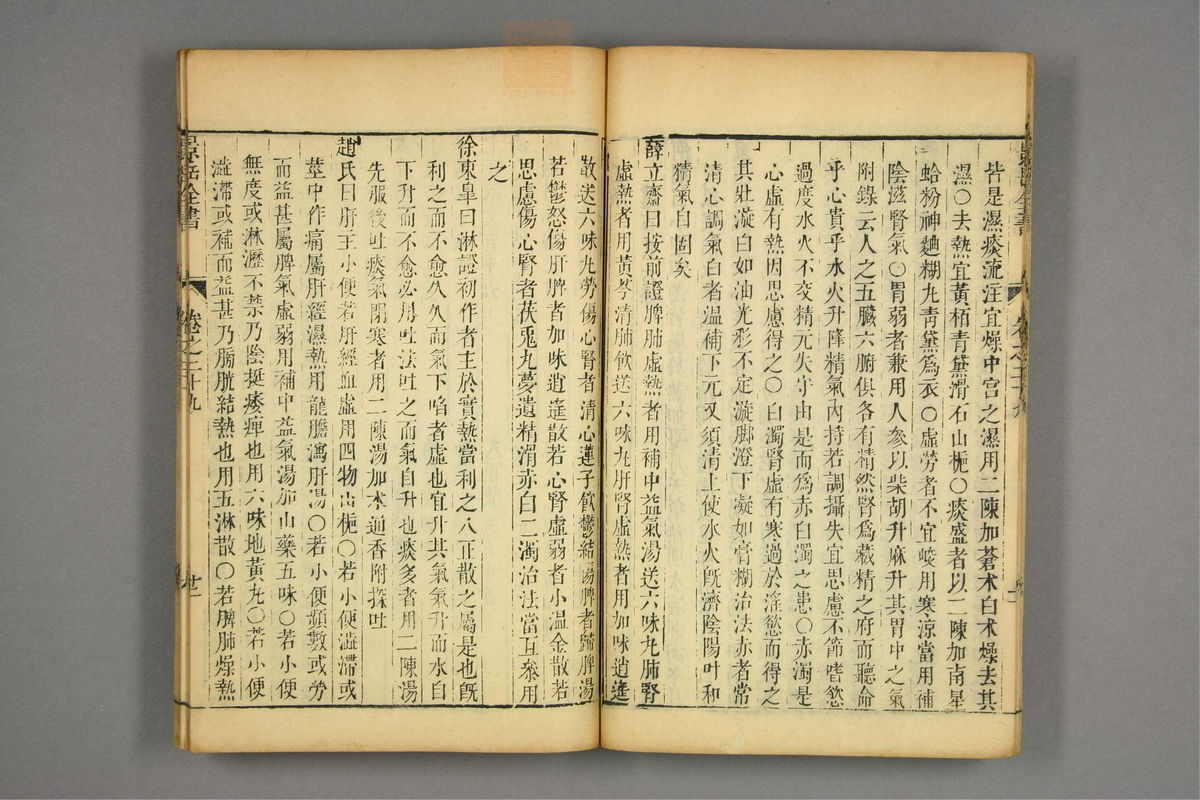 皆是濕痰流注宜燥中宮之濕用二陳加蒼术白术燥去其
濕○去熱宜黃栢青黛滑石山梔○痰盛者以二陳加南星
蛤粉神麯糊丸青黛爲衣○虛勞者不宜峻用寒涼當用補
陰滋腎氣○胃弱者兼用人參以柴胡升麻升其胃中之氣
附錄云人之五臟六腑俱各有精然腎爲藏精之府而聽命
乎心貴乎水火升降精氣內持若調攝失宜思慮不節嗜慾
過度水火不交精元失守由是而爲赤白濁之患○赤濁是
心虛有熱因思慮得之○白濁腎虛有寒過於淫慾而得之
其狀漩白如油光彩不定漩脚澄下凝如膏糊治法赤者當
清心調氣白者温補下元又須清上使水火旣濟陰陽叶和
精氣自固矣
薛立齋曰按前證脾肺虛熱者用補中益氣湯送六味丸肺腎
虛熱者用黃芩清肺飲送六味丸肝腎虛熱者用加味逍遙
散送六味丸勞傷心腎者清心蓮子飲鬱結傷脾者歸脾湯
若鬱怒傷肝脾者加味逍遙散若心腎虛弱者小温金散若
思慮傷心腎者茯兎丸夢遺精滑赤白二濁治法當互叅用
之
徐東皐曰淋證初作者主於實熱當利之八正散之屬是也旣
利之而不愈久久而氣下陷者虛也宜升其氣氣升而水自
下升而不愈必用吐法吐之而氣自升也痰多者用二陳湯
先服後吐痰氣閉塞者用二陳湯加木通香附探吐
趙氏曰肝主小便若肝經血虛用四物山梔○若小便澁滯或
莖中作痛屬肝經濕熱用龍膽瀉肝湯○若小便頻數或勞
而益甚屬脾氣虛弱用補中益氣湯加山藥五味○若小便
無度或淋瀝不禁乃陰挺痿痺也用六味地黃丸○若小便
澁滯或補而益甚乃膀胱結熱也用五淋散○若脾肺燥熱
景岳全書
卷之二十九
廿二